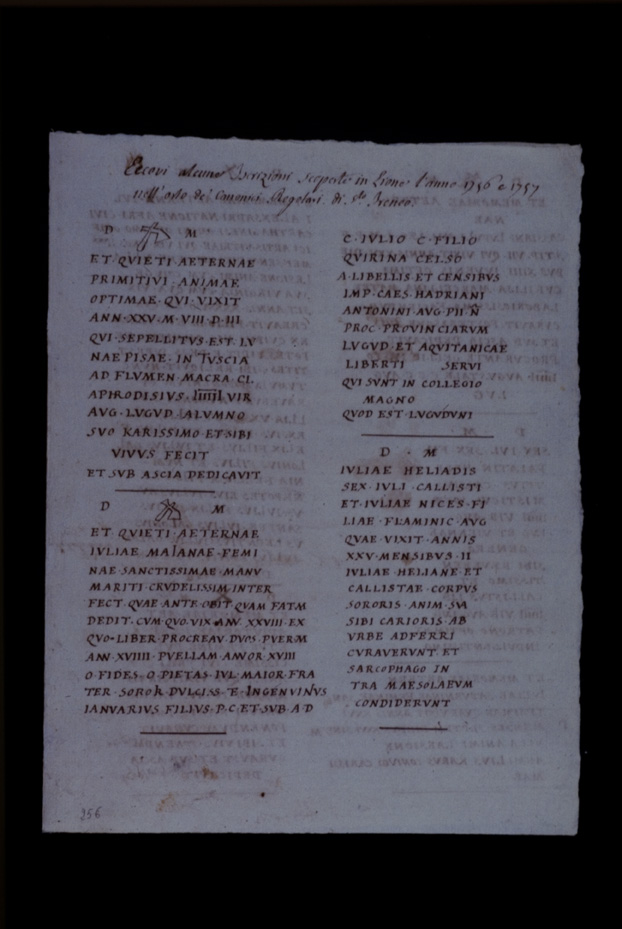 Eccovi alcune Iscrizioni scoperte in Lione l'anno 1756 e 1757
nell'orto de' Canonici Regolari di Sto Ireneo.
D M
ET QVIETI AETERNAE
PRIMITIVI ANIMAE
OPTIMAE · QVI · VIXIT
ANN · XXV · M · VIII · D · III
QVI · SEPELLITVS · EST · LV
NAE PISAE · IN TVSCIA
AD FLVMEN · MACRA · CL ·
APHRODISIVS IIIIII VIR
AVG · LVGVD · ALVMNO
SVO KARISSIMO ET · SIBI
VIVVS FECIT
ET SVB ASCIA DEDICAVIT
D M
ET QVIETI AETERNAE
IVLIAE MAIANAE · FEMI
NAE · SANCTISSIMAE · MANV
MARITI CRVDELISSIM INTER
FECT · QVAE · ANTE · OBIT QVAM FATM
DEDIT · CVM · QVO · VIX · AN · XXVIII · EX
QVO · LIBER · PROCREAV · DVOS · PVERM
ANN · XVIIII · PVELLAM · ANNOR · XVIII
O · FIDES · O · PIETAS · IVL · MAIOR · FRA
TER · SOROR DVLCISS · E · INGENVINVS
IANVARIVS · FILIVS · P · C · ET · SVB · A · D
C · IVLIO C · FILIO
QVIRINA CELSO
A · LIBELLIS · ET · CENSIBVS
IMP · CAES · HADRIANI
ANTONINI · AVG · PII · N
PROC · PROVINCIARVM
LVGVD · ET · AQVITANICAE
LIBERTI SERVI
QVI SVNT IN COLLEGIO
MAGNO
QVOD EST · LVGVDVNI
D · M
IVLIAE HELIADIS
SEX · IVLI · CALLISTI
ET · IVLIAE NICES · FI
LIAE · FLAMINIC · AVG
QVAE VIXIT · ANNIS
XXV · MENSIBVS · II
IVLIAE · HELIANE · ET
CALLISTAE · CORPVS
SORORIS · ANIM · SVA
SIBI CARIORIS · AB
VRBE ADFERRI
CVRAVERVNT · ET
SARCOPHAGO IN
TRA MAESOLAEVM
CONDIDERVNT
256